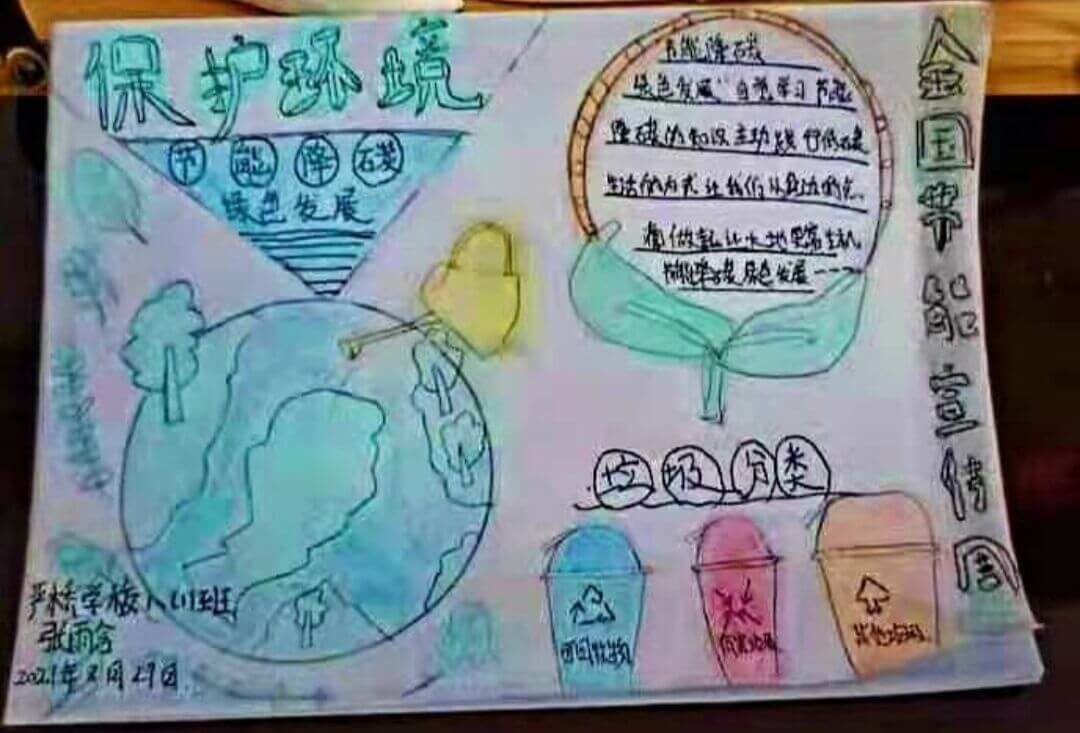 保护环境
节能降碳
绿色发展
节能降碳
绿色发展"自觉学习节能
降碳的知识主动践行低碳
生活的方式让我们从身边的点
滴做起让大地更富生机
绿色发展
全国节能宣传周
垃圾分类
可回收物
有害垃圾
其他垃圾
严桥学校八(1)班
2021年8月29日